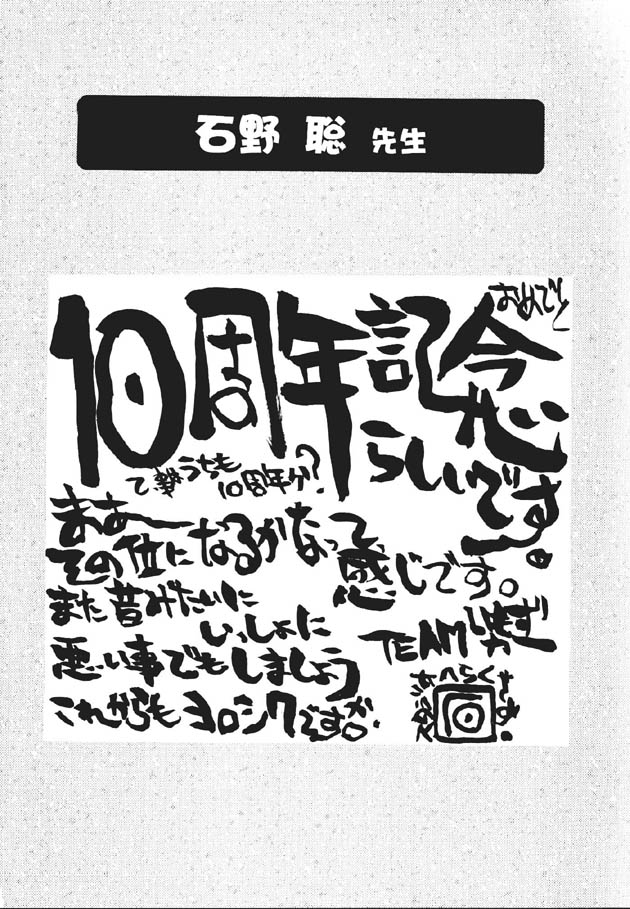 石野 聡 先生
10周年記念
おめでと
らしいです。
うちも
10周年か?
まあー
その位になるかなって
感じです。
また昔みたいに
いっしょに
悪い事でもしましょう
これからもヨロシクですが。
TEAM